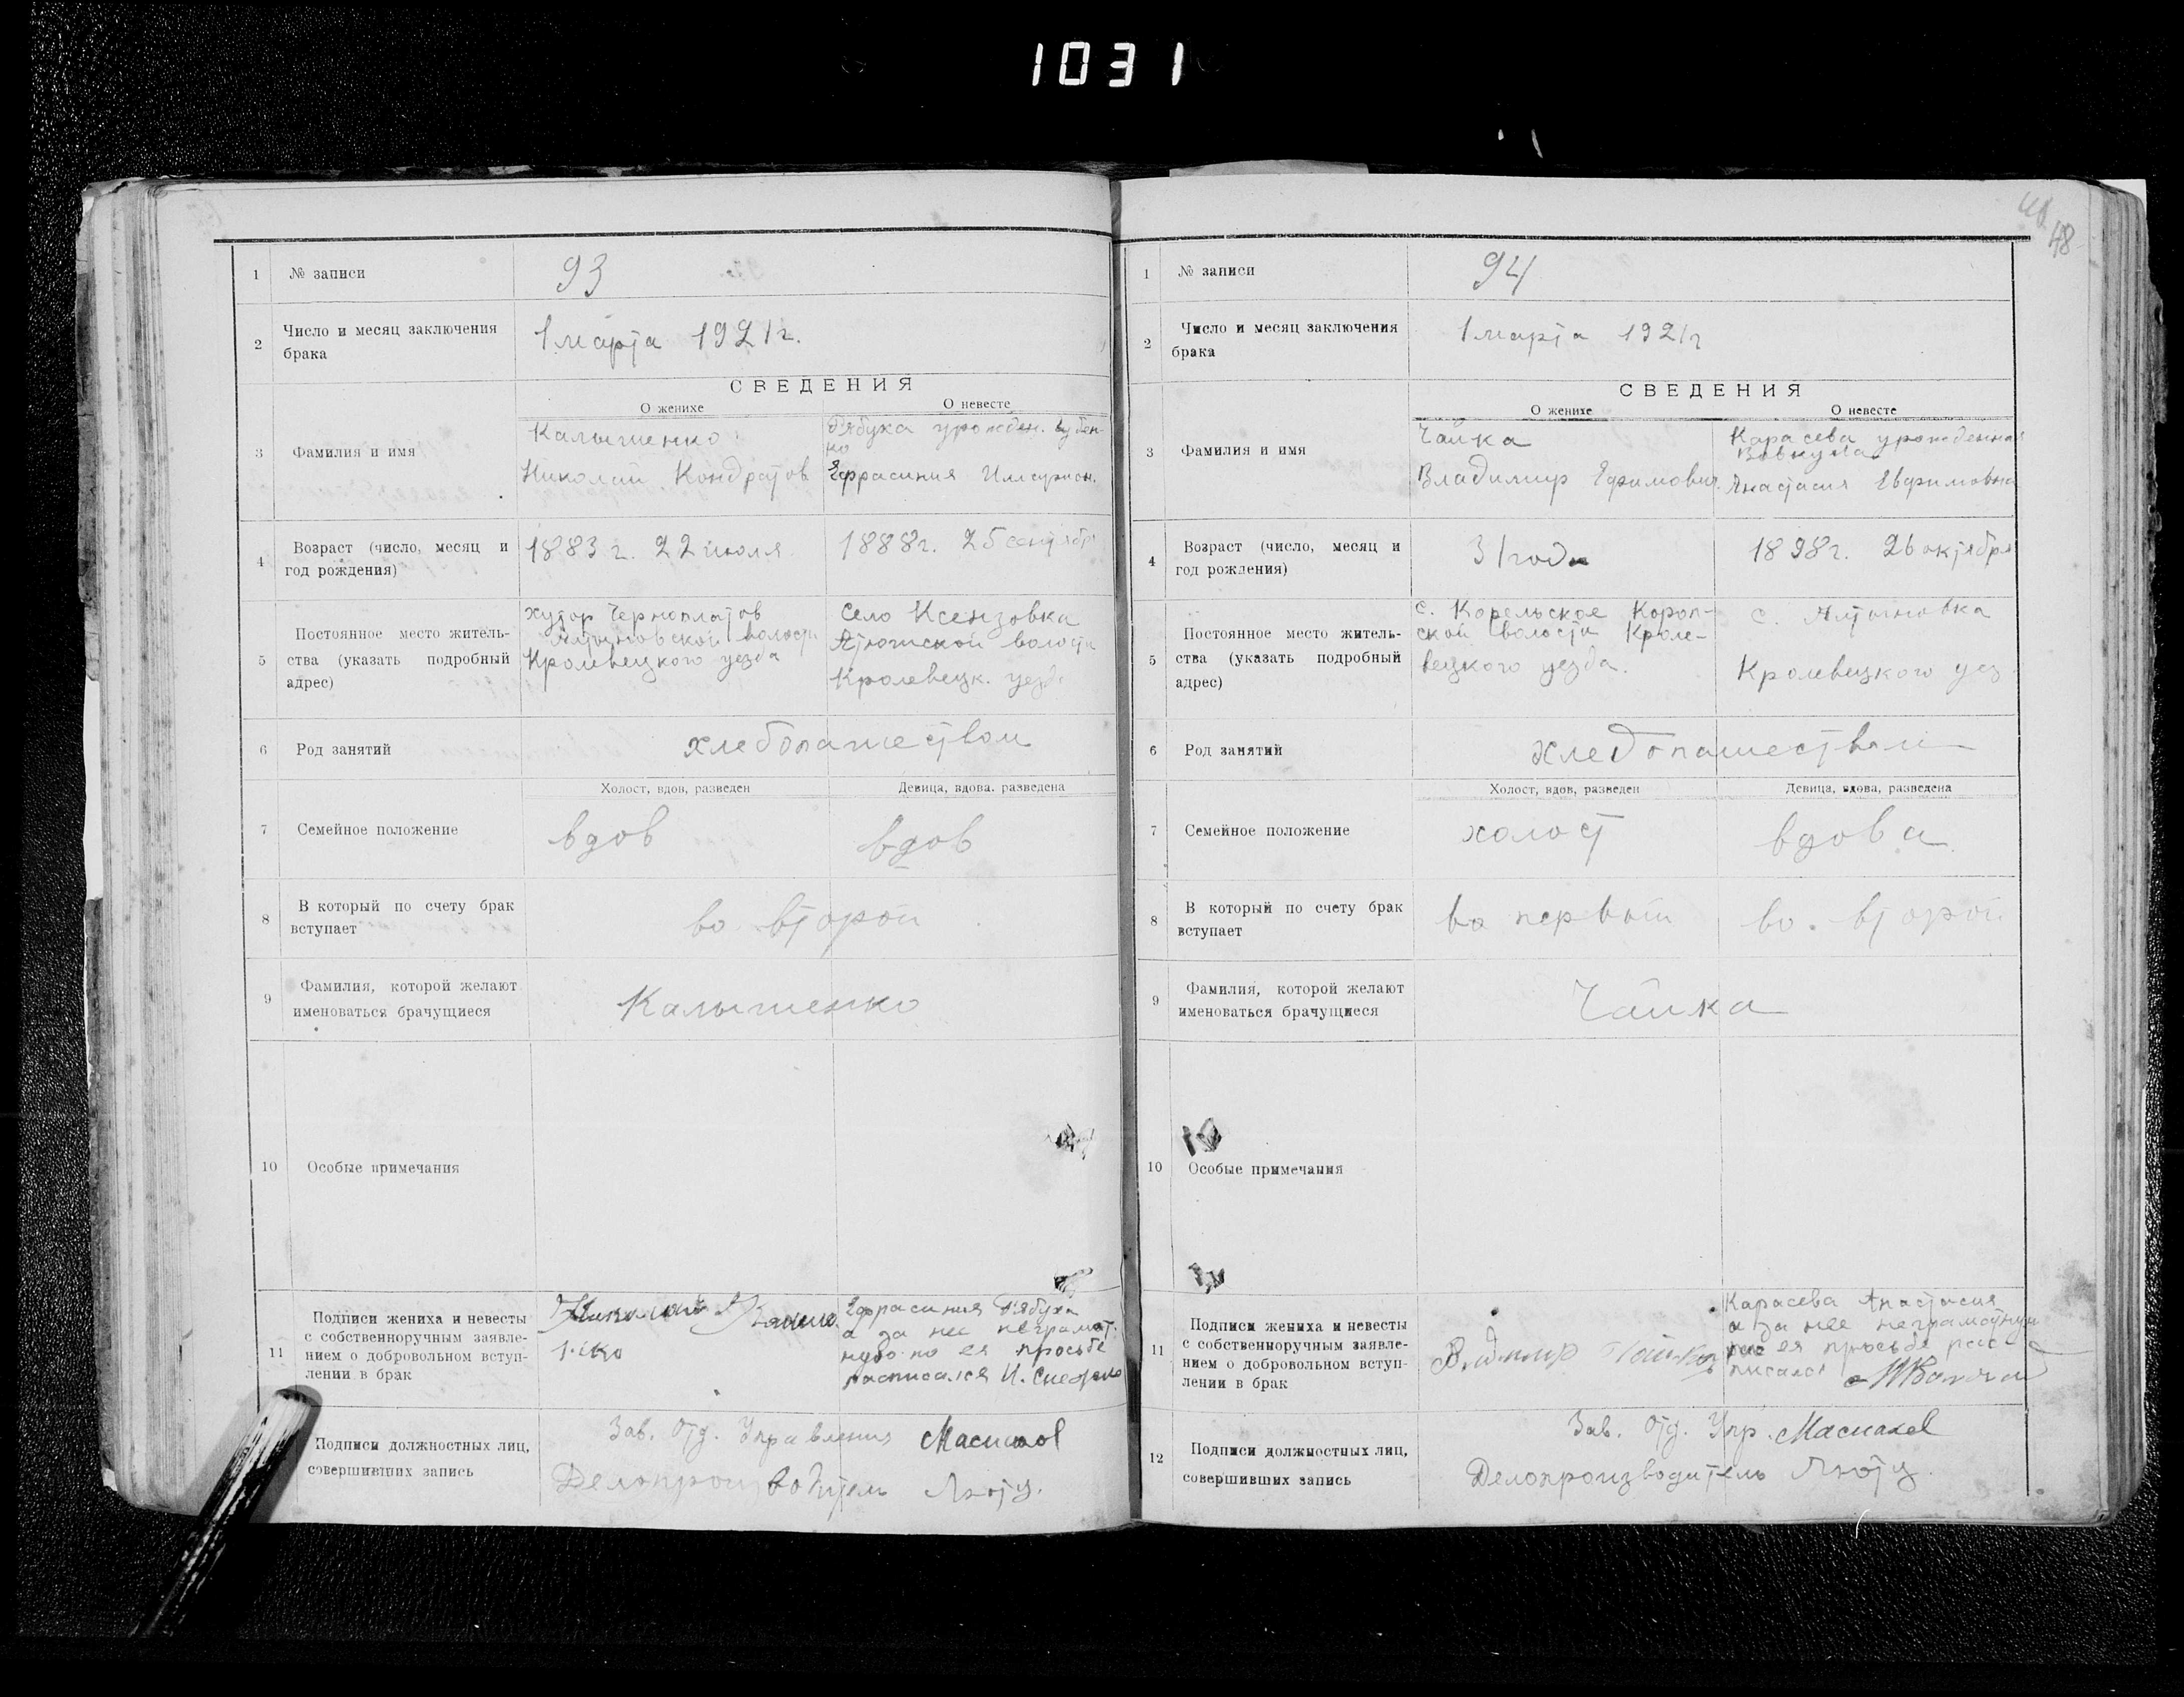 1031
48
1 № записи 93
2 Число и месяц заключения
брака
1 марта 1921 г.
СВЕДЕНИЯ
О женихе О невесте
3 Фамилия и имя
Калышенко
Николай Кондратов
Рябуха урожден.
Ефрасиния Иларион.
4 Возраст (число, месяц и
год рождения)
1883 г. 22 июля
1888 г. 25 сентября
5 Постоянное место житель-
ства (указать подробный
адрес)
хутор Черноплатов
Алтыновской волости
Кролевецкого уезда
Село Ксензовка
волости
Кролевецк. уезда
6 Род занятий хлебопашеством
Холост, вдов, разведен Девица, вдова, разведена
7 Семейное положение вдов вдов
8 В который по счету брак
вступает
во второй
9 Фамилия, которой желают
именоваться брачущиеся
Калышенко
10 Особые примечания
11 Подписи жениха и невесты
с собственноручным заявле-
нием о добровольном вступ-
лении в брак
Николай
Ефрасиния Рябуха
а за нее неграмот.
ную по ея просьбе
расписался И.
Подписи должностных лиц,
совершивших запись
Зав. Отд. Управления
Делопроизводитель
1 № записи 94
2 Число и месяц заключения
брака
1 марта 1921 г
СВЕДЕНИЯ
О женихе О невесте
3 Фамилия и имя
Чайка
Владимир Ефимович
Карасева урожденная
Вовкула
Анастасия Евфимовна
4 Возраст (число, месяц и
год рождения)
31 года
1898 г. 26 октября
5 Постоянное место житель-
ства (указать подробный
адрес)
с. Корельское Короп-
ской волости Кроле-
вецкого уезда.
с. Алтыновка
Кролевецкого уез.
6 Род занятий хлебопашеством
Холост, вдов, разведен Девица, вдова, разведена
7 Семейное положение холост вдова
8 В который по счету брак
вступает
во первый во второй
9 Фамилия, которой желают
именоваться брачущиеся
Чайка
10 Особые примечания
11 Подписи жениха и невесты
с собственноручным заявле-
нием о добровольном вступ-
лении в брак
Владимир Чайка
Карасева Анастасия
а за нее неграмотную
по ея просьбе рас-
писался
12 Подписи должностных лиц,
совершивших запись
Зав. Отд. Упр.
Делопроизводитель